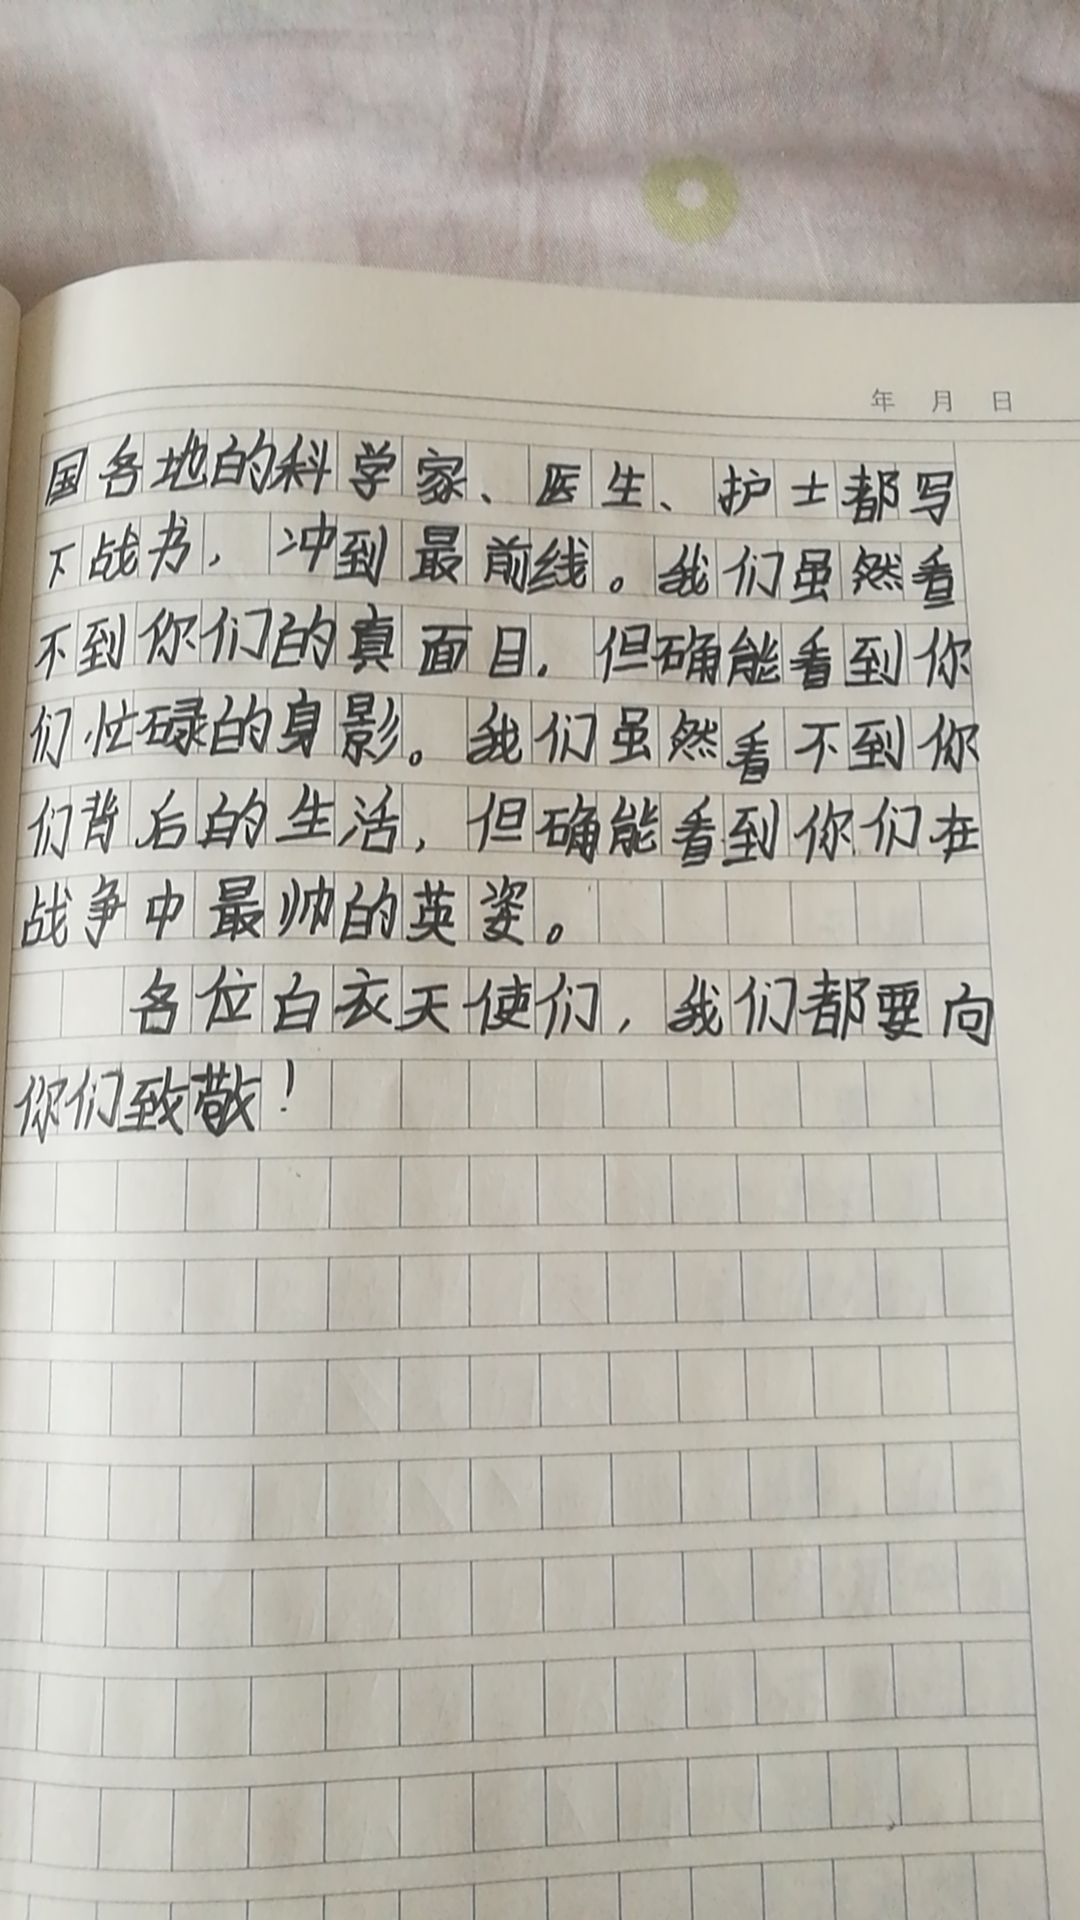 年 月 日
国各地的科学家、医生、护士都写
下战书，冲到最前线。我们虽然看
不到你们的真面目，但确能看到你
们忙碌的身影。我们虽然看不到你
们背后的生活，但确能看到你们在
战争中最帅的英姿。
各位白衣天使们，我们都要向
你们致敬！